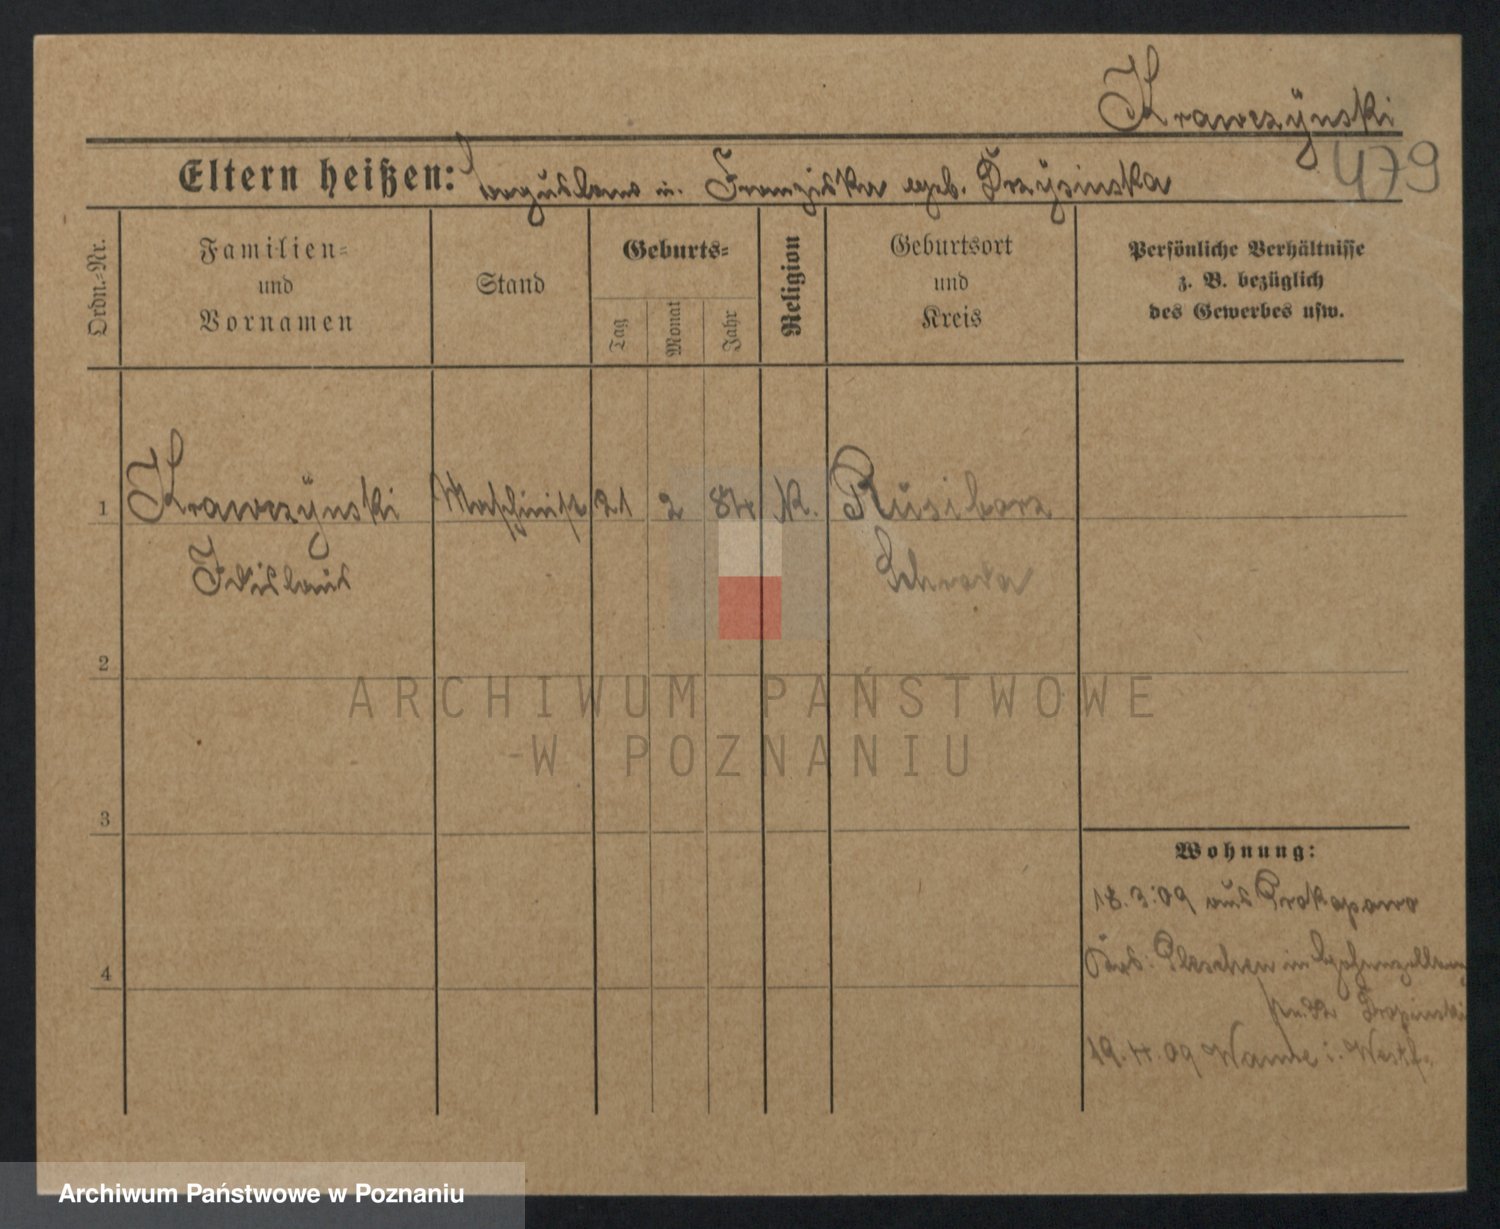 Krawczÿnski
479
Eltern heißen: u. Franziska geb.
Ordn.-Nr.
Familien-
und
Vornamen
Stand
Geburts-
Tag
Monat
Jahr
Religion
Geburtsort
und
Kreis
Persönliche Verhältnisse
z. B. bezüglich
des Gewerbes usw.
1
Krawczÿnski Maschinist 21 2 84 K. Rusiborz
Schroda
2
ARCHIWUM PAŃSTWOWE
W POZNANIU
3
Wohnung:
18.3.09 aus Prokopowo
Krs. Pleschen in
4
19.4.09 Wanne i. Westf.
Archiwum Państwowe w Poznaniu